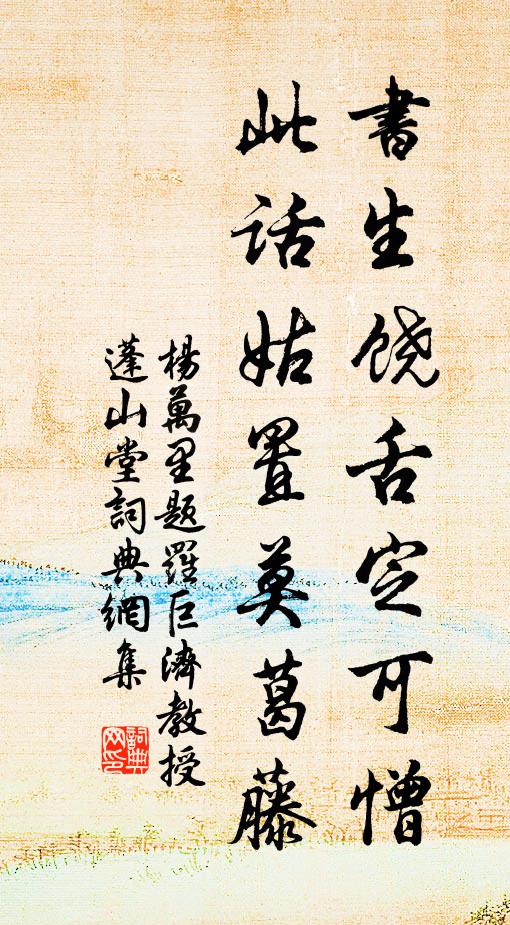 書生饶舌定可憎
此话姑置莫葛藤
楊萬里题羅巨濟教授
蓬山堂詞典網集
詞典网印